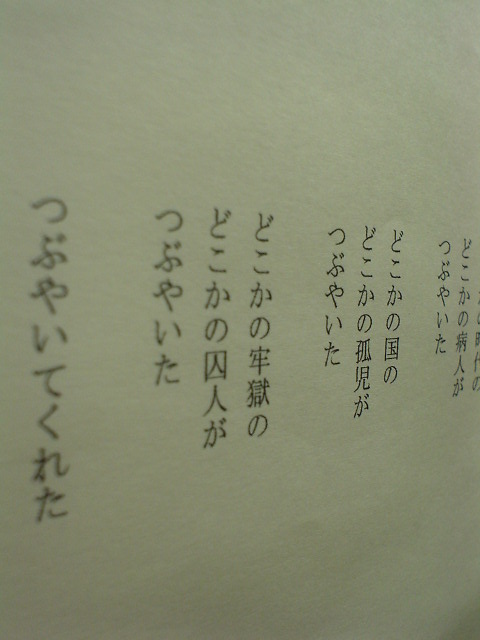 の時代の
どこかの病人が
つぶやいた
どこかの国の
どこかの孤児が
つぶやいた
どこかの牢獄の
どこかの囚人が
つぶやいた
つぶやいてくれた